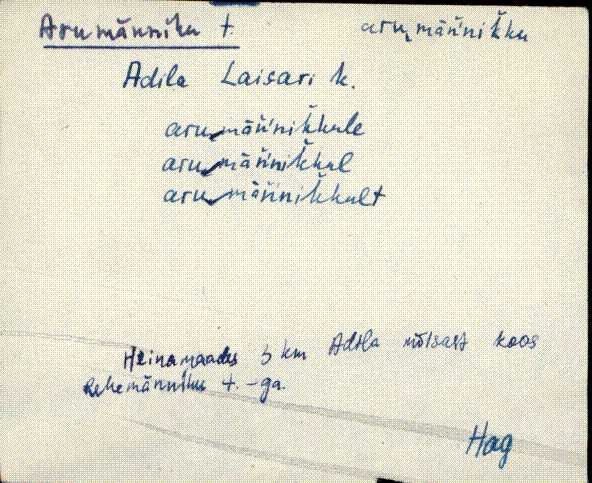 Arumänniku t. aru‿mäńnik̀ku
Adila Laisari k.
aru‿mäńnik̀kule
aru‿mäńnik̀kul
aru‿mäńnik̀kult
Heinamaades 3 km Adila mõisast koos
Rehemänniku t.-ga.
Hag